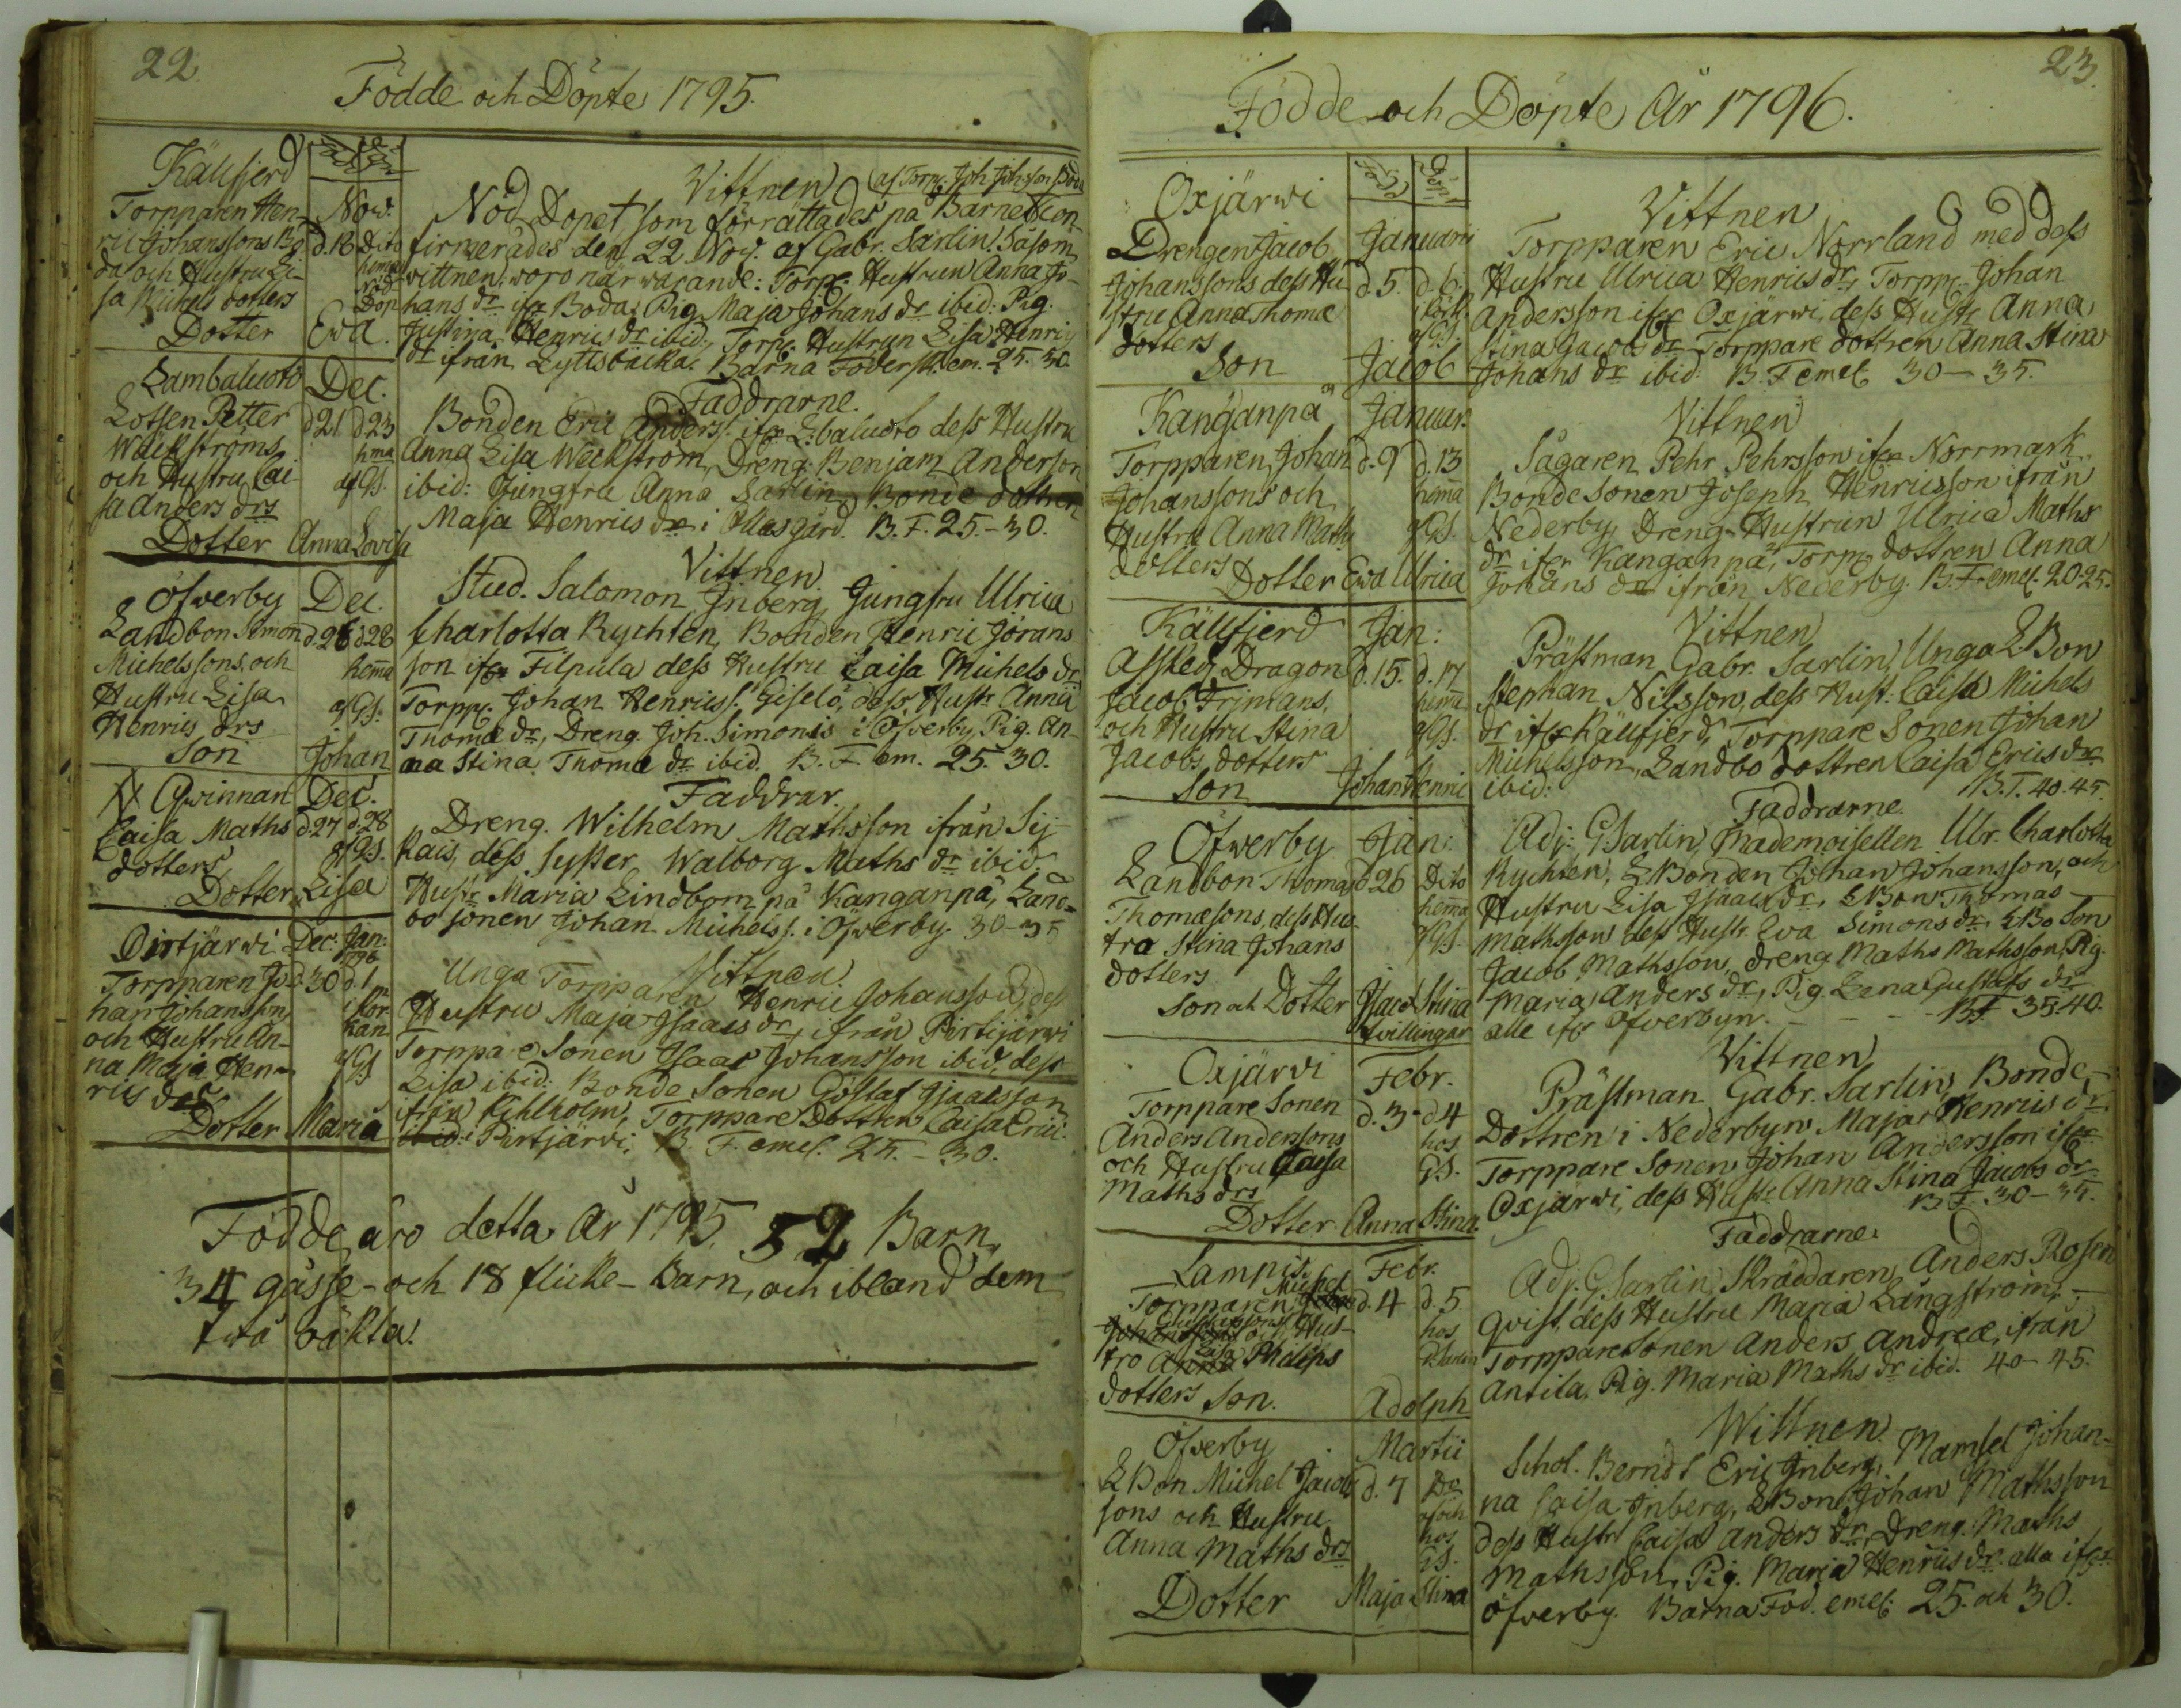 22
Födde och Döpte 1795.
Källfjerd
Torpparen Hen-
ric Johanssons Bo-
da och Hustru Li-
sa Michels dotters
Dotter Ewa.
Now.
d. 18 Dito
hema
nöd
Dop
Vittnen (af Torp. Joh Johsson Boda
Nöd Dopet, som förrättades på Barnet con-
firmerades den 22 Nov. af Gabr. Sarlin. Såsom
wittnen woro när warande: Torp. Hustrun Anna Jo-
hans dr ifr Boda, Pig. Maja Johans dr ibid: Pig.
Justina Henrics dr ibid. Torp. Hustrun Lisa Henrics
dr ifrån Lyttsbäcka. Barna Föderск. em. 25. 30.
Lambaluoto
Lotsen Petter
Wäckströms
och Hustru Cai-
sa Anders drs
Dotter Anna Lovisa
Dec.
d 21 d 23
hma
af GS.
Faddrarne.
Bonden Eric Anders. ifr L:baluoto dess Hustru
Anna Lisa Weckström, Dreng. Benjam Anderson
ibid: Jungfru Anna Sarlin, Bonde dottren
Maja Henrics dr i Ollasgård. B. F. 25.-30.
Öfverby
Landbon Simon
Michelssons och
Hustru Lisa
Henrics drs
Son Johan
Dec.
d. 26 d 28
hema
af GS.
Vittnen.
Stud. Salomon Inberg, Jungfru Ulrica
Charlotta Rychten, Bonden Henric Jörans
son ifr Filpula dess Hustru Caisa Michels dr
Torpp. Johan Henricss. Giselö, dess Hustr Anna
Thomæ dr, Dreng. Joh. Simonis i Öfverby, Pig. An-
na Stina Thomæ dr ibid. B. F. em. 25. 30.
Qvinnan
Caisa Maths
dotters
Dotter Lisa
Dec.
d. 27 d. 28
af GS.
Faddrar.
Dreng. Wilhelm Mathsson ifrån Sij-
kais, dess syster Walborg Maths dr ibid.
Hustr Maria Lindbom på Kanganpä, Land-
bo sonen Johan Michelss. i Öfverby. 30-35
Pirtjärwi
Torpparen Jo-
han Johansson
och Hustru An-
na Maja Hen-
rics drs
Dotter Maria
Dec. Jan:
1796
d. 30 d. 1
i kör-
kan
af GS
Vittnen.
Unga Torpparen Henric Johansson, dess
Hustru Maja Isaacs dr, ifrån Pirtijärwi
Torppare Sonen Isaac Johansson ibid, dess
Lisa ibid: Bonde Sonen Göstaf Isaacsson
ifrån Kihlholm, Torppare Dottren Caisa Eric:
ibid: Pirtjärvi. B. F. emel. 25. - 30.
Födde äro detta År 1795. 52 Barn,
34 gåsse- och 18 flicke-Barn, och ibland dem
twå oäkta.
23.
Födde och Döpte År 1796.
Oxjärwi
Drengen Jacob
Johanssons dess Hu-
stru Anna Thomæ
dotters
Son Jacob
Januarii
d. 5. d. 6.
af GS.
Vittnen
Torpparen Eric Norrland med dess
Hustru Ulrica Henrics dr, Torpp. Johan
Andersson ifr Oxjärwi, dess Hustr Anna
Stina Jacobs dr Torppare dottren Anna Stina
Johans dr ibid. B. F emel. 30-35.
Kanganpä
Torpparen Johan
Johanssons och
Hustru Anna Maths
dotters
Dotter Ewa Ulrica
Januar.
d. 9 d. 13
hema
af GS.
Vittnen
Sågaren Pehr Pehrsson ifr Norrmark
Bonde Sonen Joseph Henricsson ifrån
Nederby, Dreng-Hustrun Ulrica Maths
dr ifr Kanganpä, Torp. dottren Anna
Johans dr ifrån Nederby. B. F. emel. 20-25.
Källfjerd
Afsked. Dragon
Jacob Frimans,
och Hustru Stina
Jacobs dotters
Son Johan Henric
Jan:
d. 15. d. 17
hema
af GS.
Vittnen
Prästman Gabr. Sarlin, Unga LBon
Stephan Nilsson, dess Hust. Caisa Michels
dr ifr Källfjerd, Torppare Sonen Johan
Michelsson, Landbo dottren Caisa Erics dr
ibid: B. F. 40. 45.
Öfwerby
Landbon Thomas
Thomæsons, dess Hu-
tru Stina Johans
dotters
Son och Dotter Isaac Stina
tvillingar
Jan:
d 26 Dito
hema
af GS
Faddrarne.
Adj. GSarlin, Mademoisellen Ulr. Charlotta
Rychten, LBonden Johan Johansson, och
Hustru Lisa Isaacs dr, LBon Thomas
Mathsson dess Hustr. Eva Simons dr, LBo Son
Jacob Mathsson, Dreng Maths Mathsson, Pig.
Maria Anders dr, Pig. Lena Gustafs dr
alle ifr Öfverbyn. - - - B.F. 35. 40.
Oxjärvi
Torppare Sonen
Anders Anderssons
och Hustru Caisa
Maths drs
Dotter Anna Stina.
Febr.
d. 3 - d 4
hos
GS.
Vittnen
Prästman Gabr. Sarlin, Bonde-
Dottren i Nederbyn Maja Henrics dr
Torppare Sonen Johan Andersson ifr
Oxjärwi, dess Hustr Anna Stina Jacobs dr
B F. 30-35.
Lampis
Torpparen Michel
Gustafssons och Hus-
tro Lisa Philips
dotters Son. Adolph
Febr.
d. 4 d. 5
hos
GSarlin
Faddrarne.
Adj. GSarlin, Skräddaren Anders Rosen
qvist, dess Hustru Maria Långström, -
Torppare Sonen Anders Andreæ, ifrån
Antila, Pig. Maria Maths dr ibid. 40-45.
Öfverby
LBon Michel Jacobs
sons och Hustru
Anna Maths drs
Dotter Maja Stina
Martii
d. 7 Do
af och
hos
GS.
Wittnen.
Schol. Berndt Eric Inberg, Mamsel Johan-
na Caisa Inberg, LBon Johan Mathsson
dess Hustr Caisa Anders dr, Dreng. Maths
Mathsson, Pig. Maria Henrics dr alla ifr
Öfverby. Barna Föd. emel. 25. och 30.